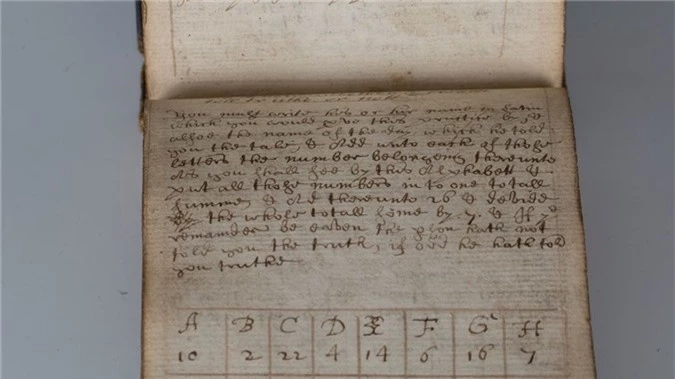 You must write his or her name in Latin
which you would prove this practice by, &
allsoe the name of the day which he told
you the tale, & Add unto each of those
letters the number belonging thereunto
As you shall see by this Alphabett &
put all those numbers in to one totall
summe & Ad thereunto 26 & devide
the whole totall some by .7. & If ye
remainder be eaven hath not
told you the truth, if odd he hath told
you truthe
A B C D E F G H
10 2 22 4 14 6 16 7